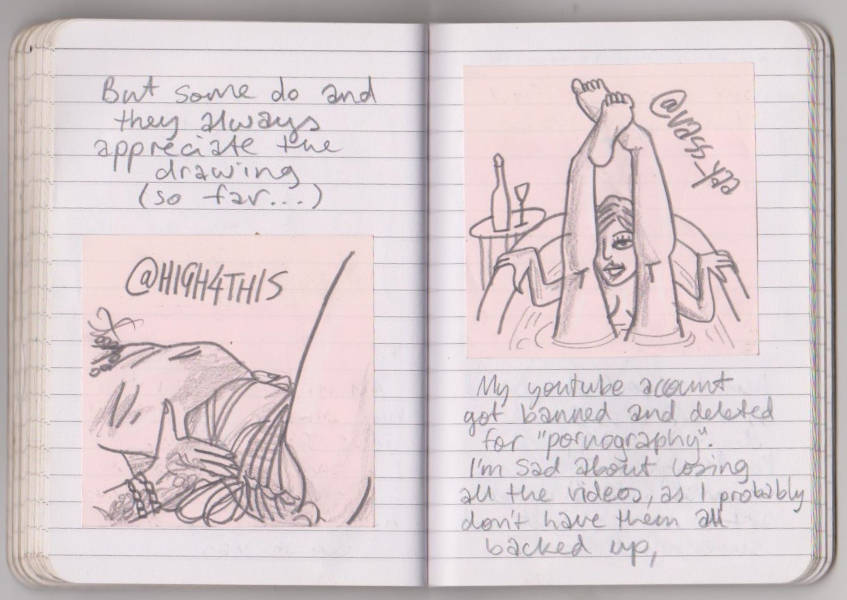 But some do and
they always
appreciate the
drawing
(so far...)
@HIGH4THIS
@vass_eek
My youtube acount
got banned and deleted
for "pornography".
I'm sad about losing
all the videos, as I probably
don't have them all
backed up,